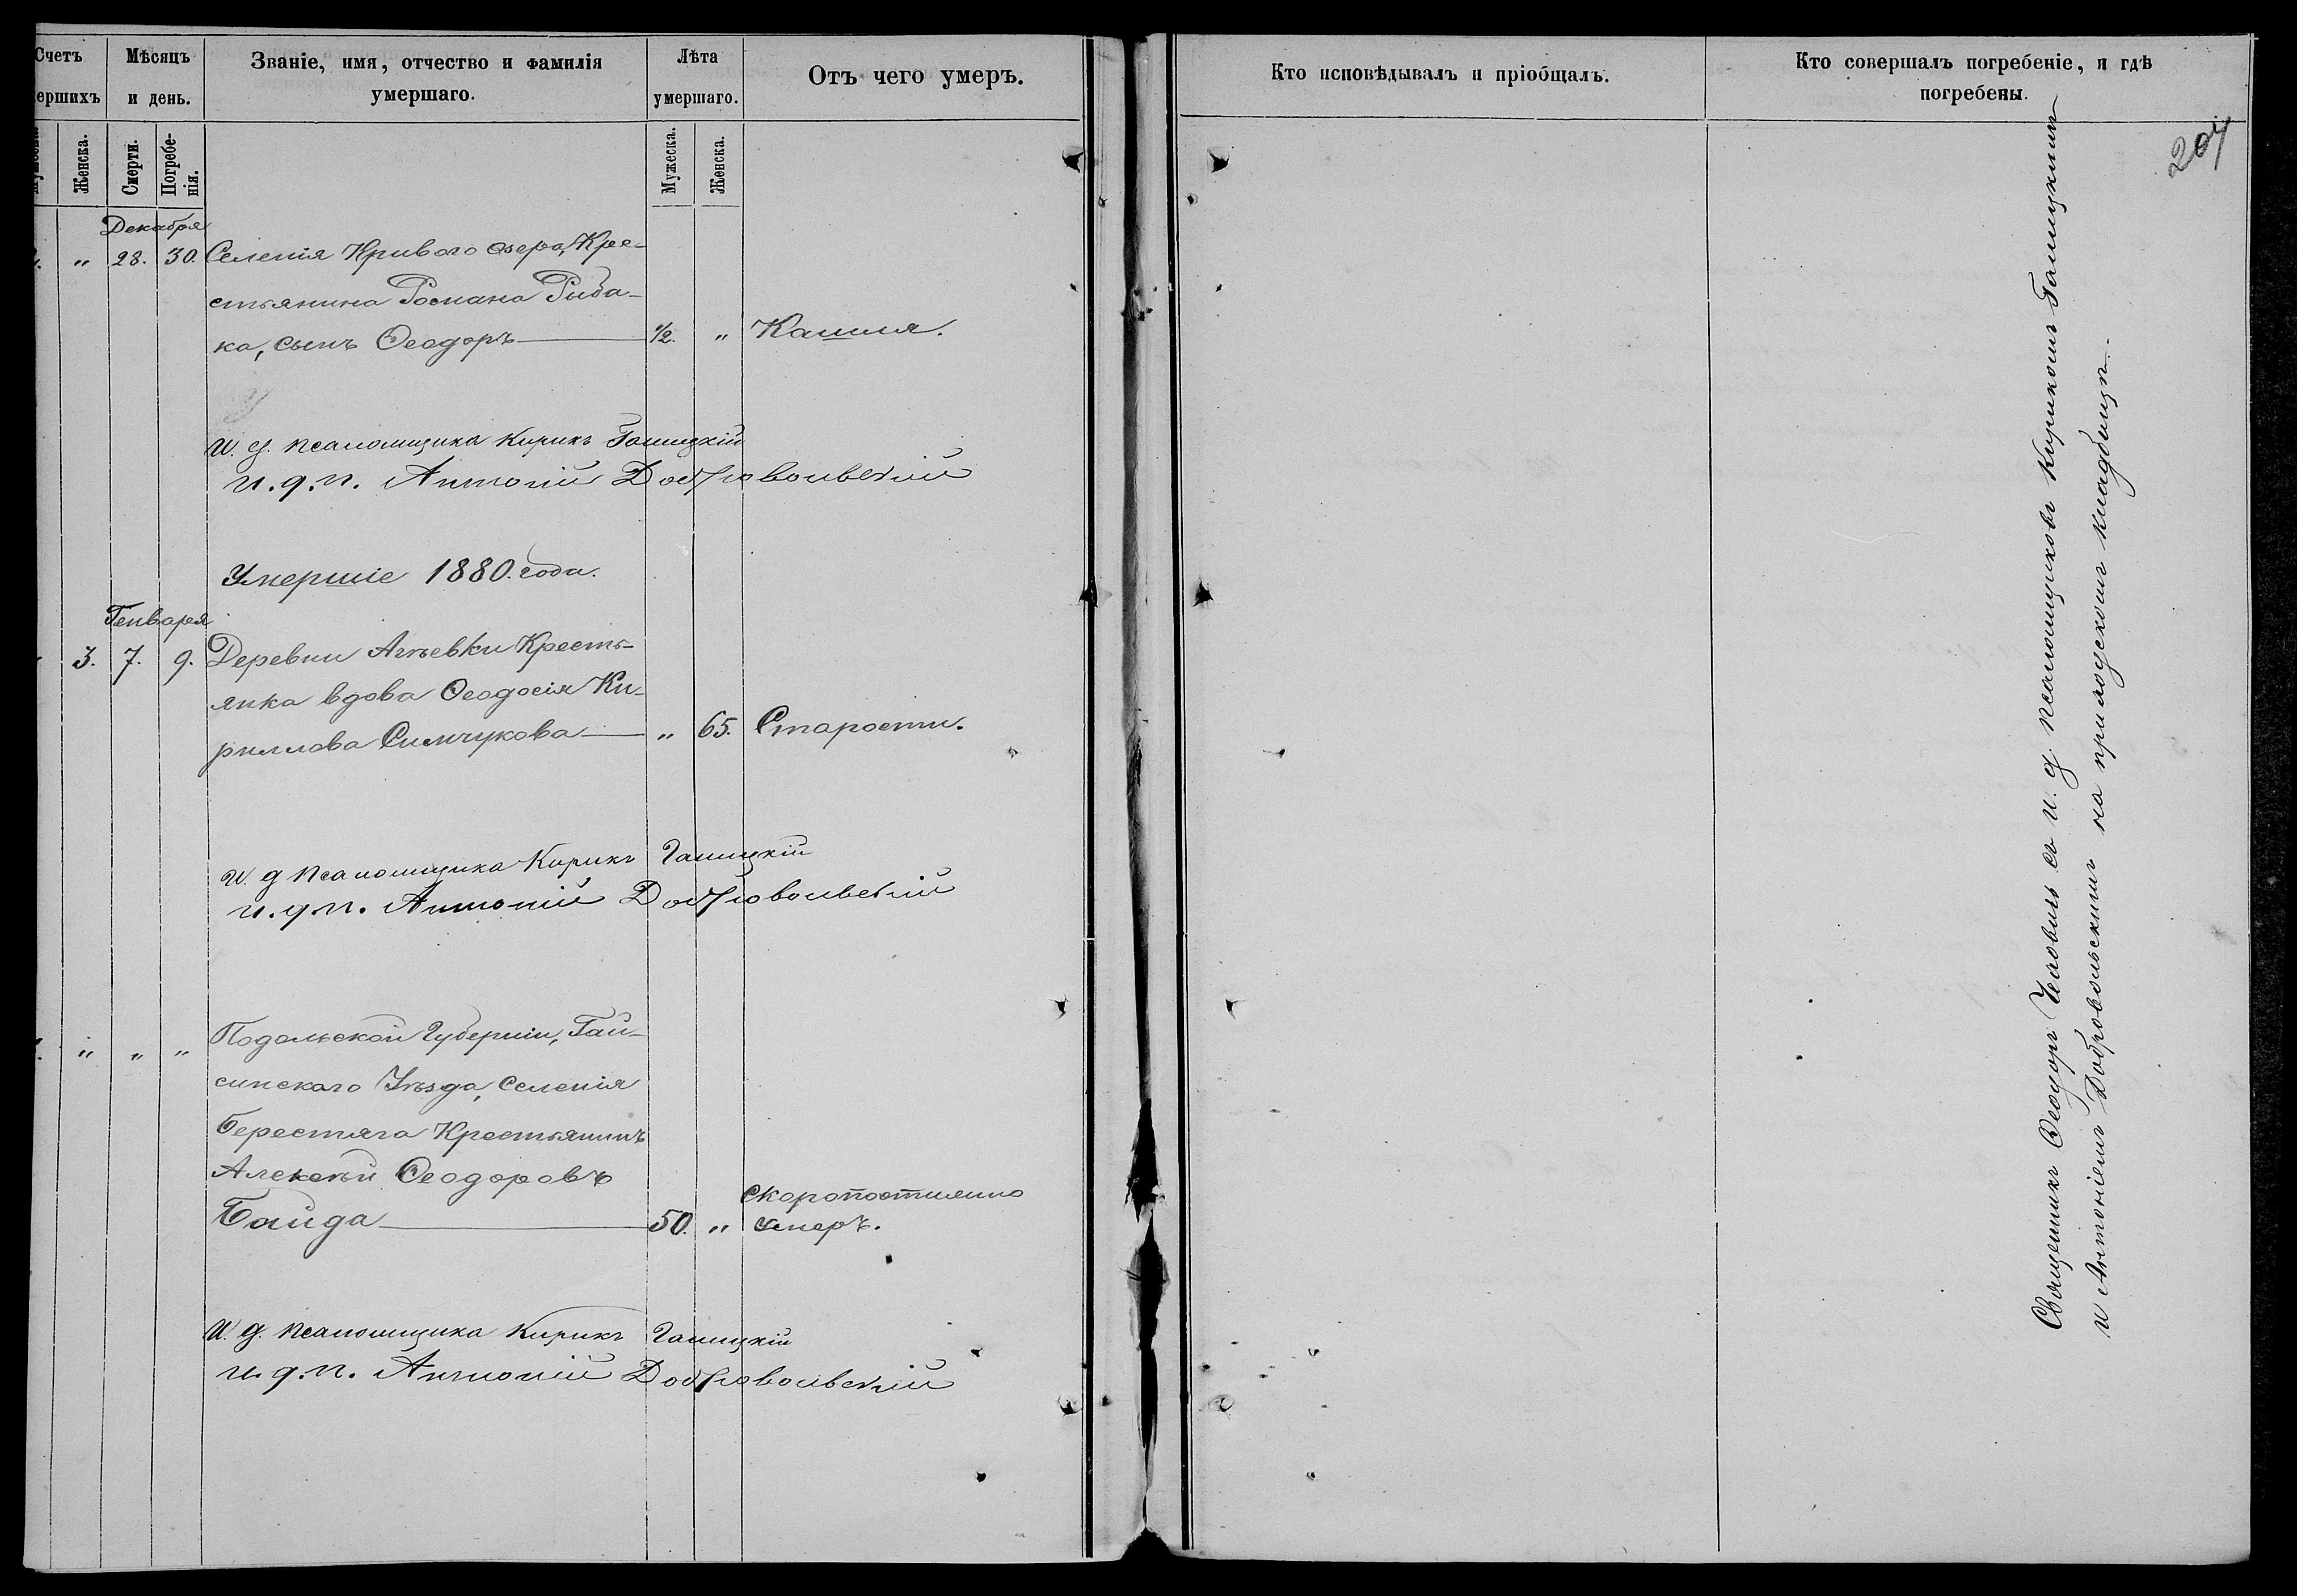 Счетъ
ершихъ
Мѣсяцъ
и день.
Званіе, имя, отчество и фамилія
умершаго.
Лѣта
умершаго.
Отъ чего умеръ.
Женска.
Смерти.
Погребе-
нія.
Мужеска.
Женска.
Декабря
„ 28. 30. Селенія Криваго озера, Кре-
стьянина Романа Рыба-
ка, сынъ Ѳеодоръ 1/2. „ Кашля.
И. д. псаломщика Кирикъ Галицкій
и. д. п. Антоній Добровольскій
Умершіе 1880. года.
Генваря
3. 7. 9. Деревни Агѣевки Кресть-
янка вдова Ѳеодосія Ки-
риллова Симчукова „ 65. Старости.
И. д псаломщика Кирикъ Галицкій
и. д. п. Антоній Добровольскій
„ „ „ Подольской Губерніи, Гай-
синскаго Уѣзда, Селенія
Берестяга Крестьянинъ
Алексѣй Ѳеодоровъ
Байда 50. „ Скоропостижно
умеръ.
И. д. псаломщика Кирикъ Галицкій
и. д. п. Антоній Добровольскій
Кто исповѣдывалъ и пріобщалъ.
Кто совершалъ погребеніе, и гдѣ
погребены.
207
Священникъ Ѳеодоръ съ и. д. псаломщиковъ Кирикомъ Галицкимъ
и Антоніемъ Добровольскимъ на приходскомъ кладбищѣ.